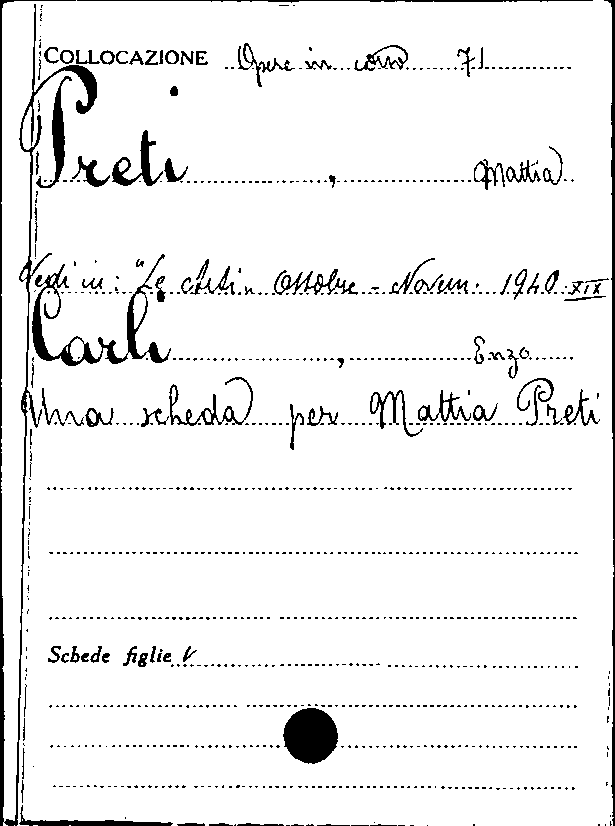 COLLOCAZIONE Opere in corso 71
Preti, Mattia
Vedi in: "Le Arti" Ottobre - Novem. 1940 XIX
Carli, Enzo
Una scheda per Mattia Preti
Schede figlie V